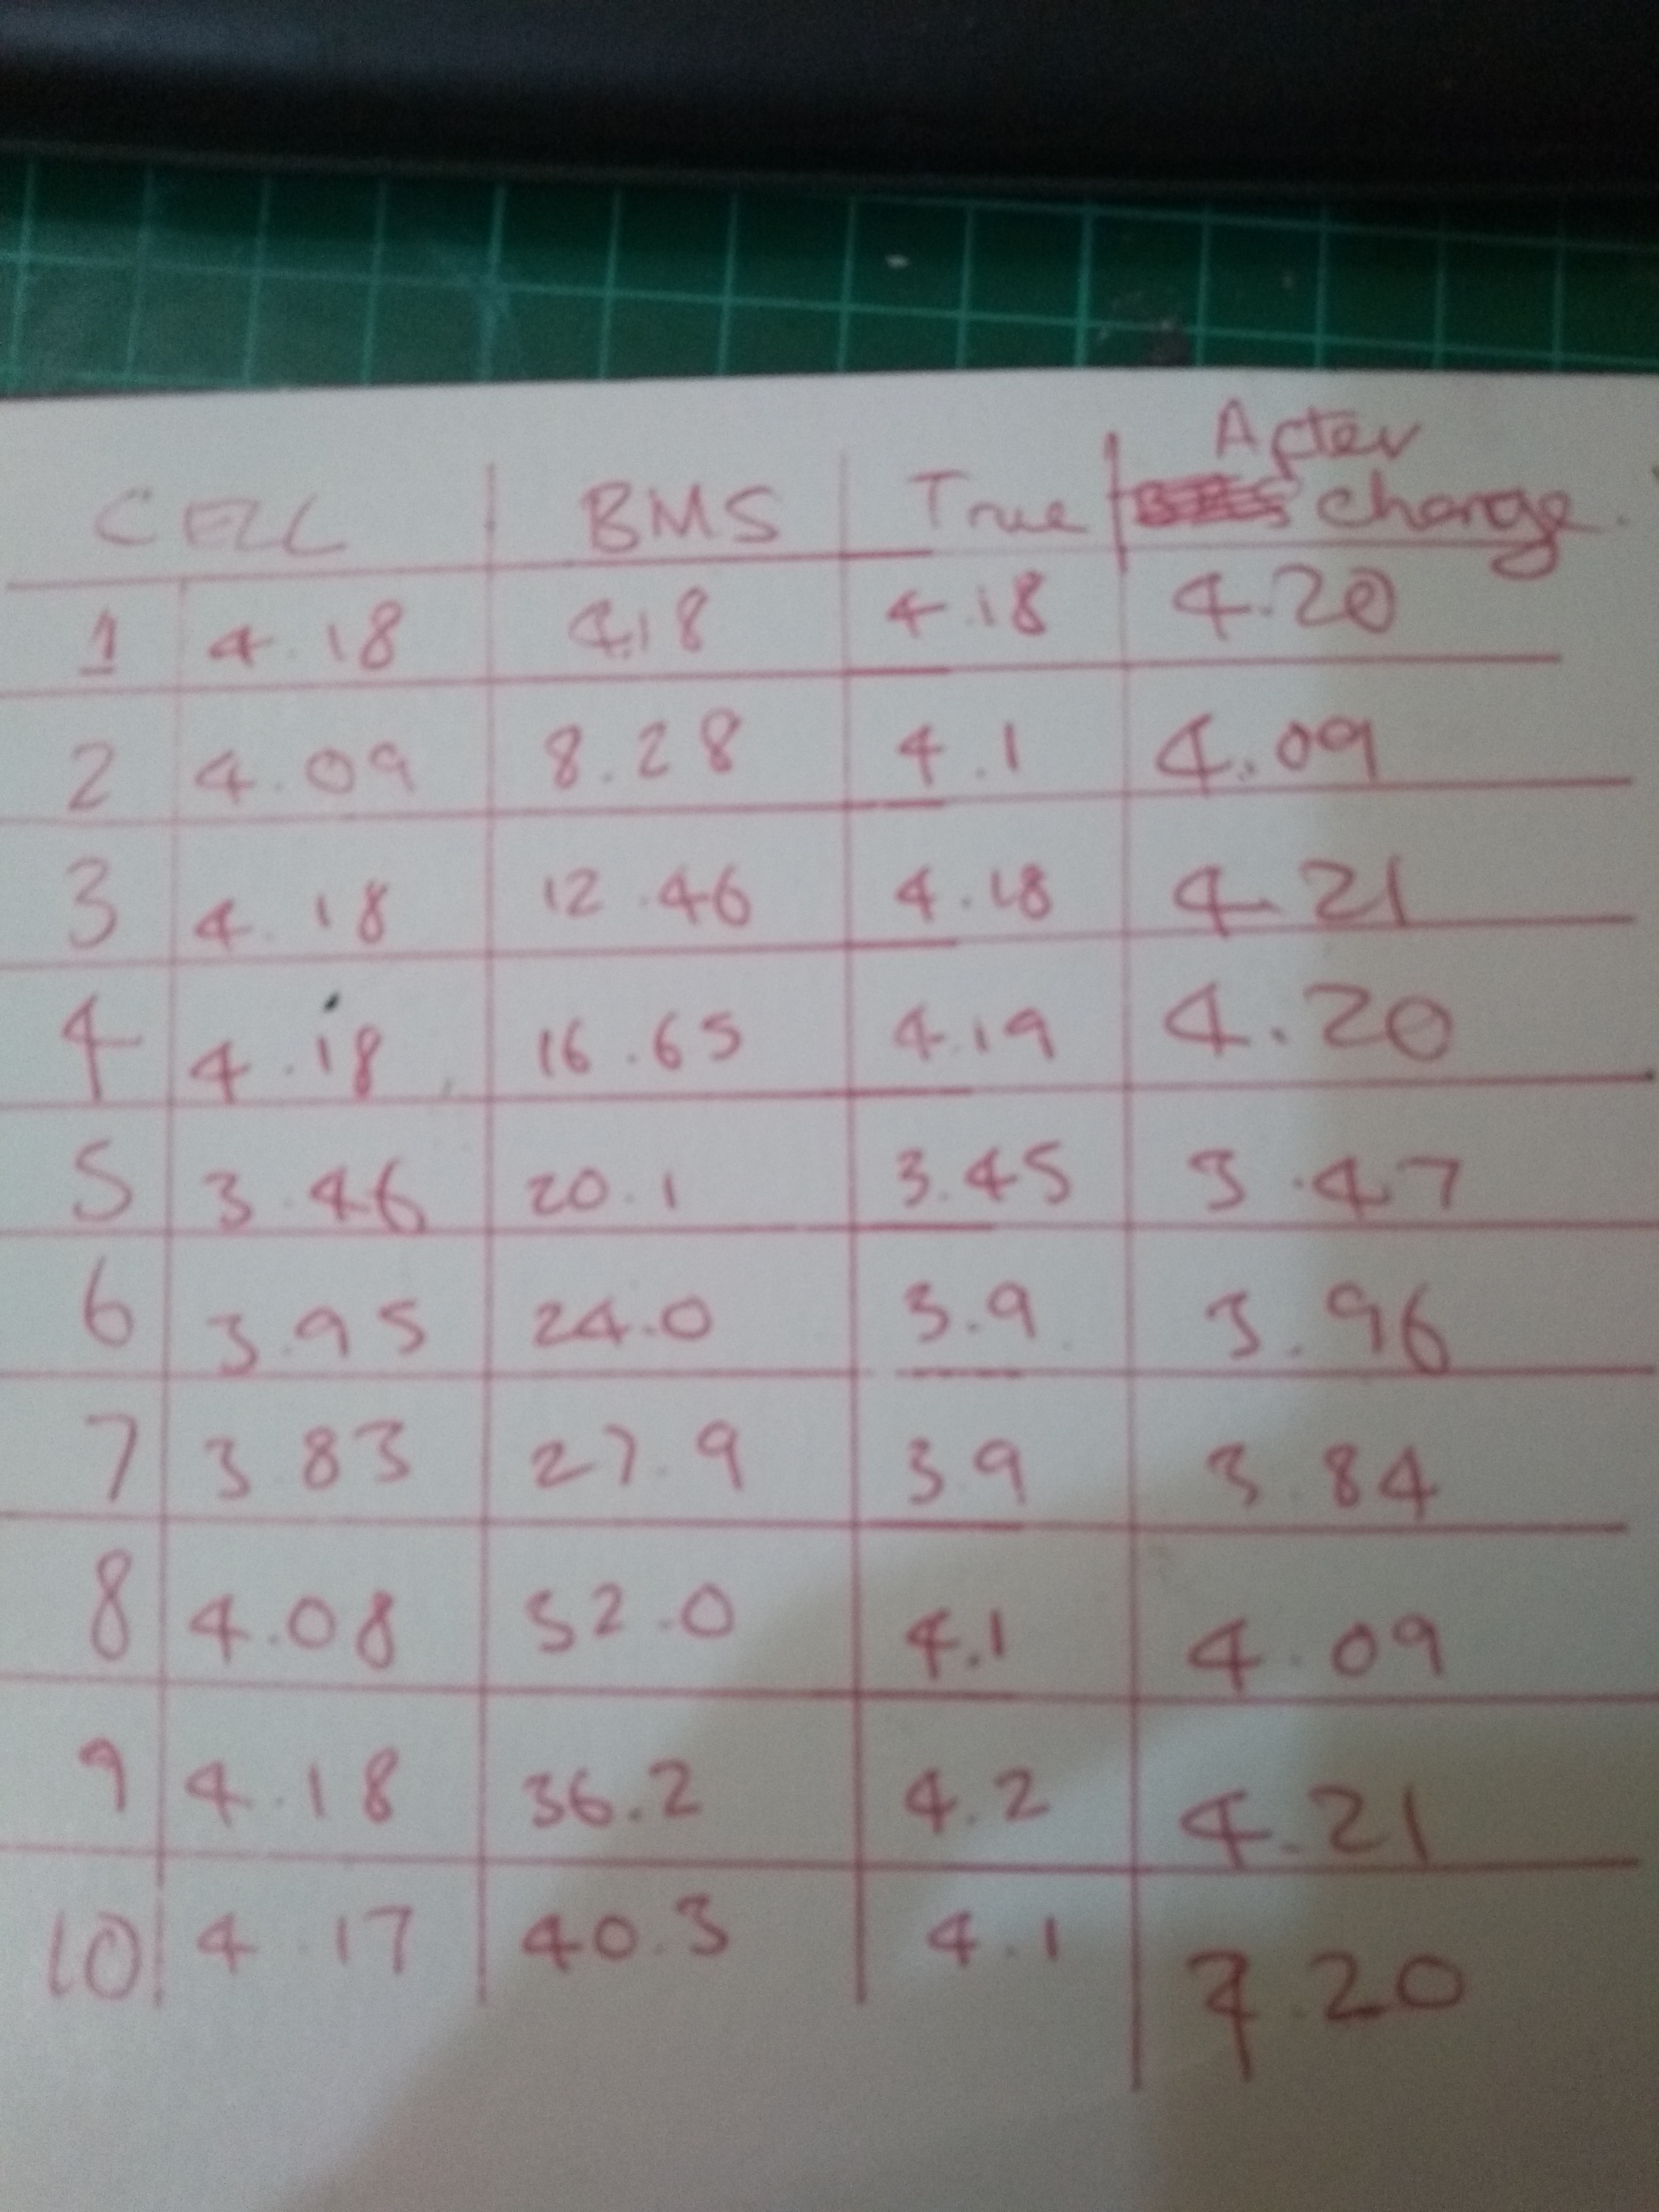 After
CELL BMS True change.
1 4.18 4.18 4.18 4.20
2 4.09 8.28 4.1 4.09
3 4.18 12.46 4.18 4.21
4 4.18 16.65 4.19 4.20
5 3.46 20.1 3.45 3.47
6 3.95 24.0 3.9 3.96
7 3.83 27.9 3.9 3.84
8 4.08 32.0 4.1 4.09
9 4.18 36.2 4.2 4.21
10 4.17 40.3 4.1 4.20